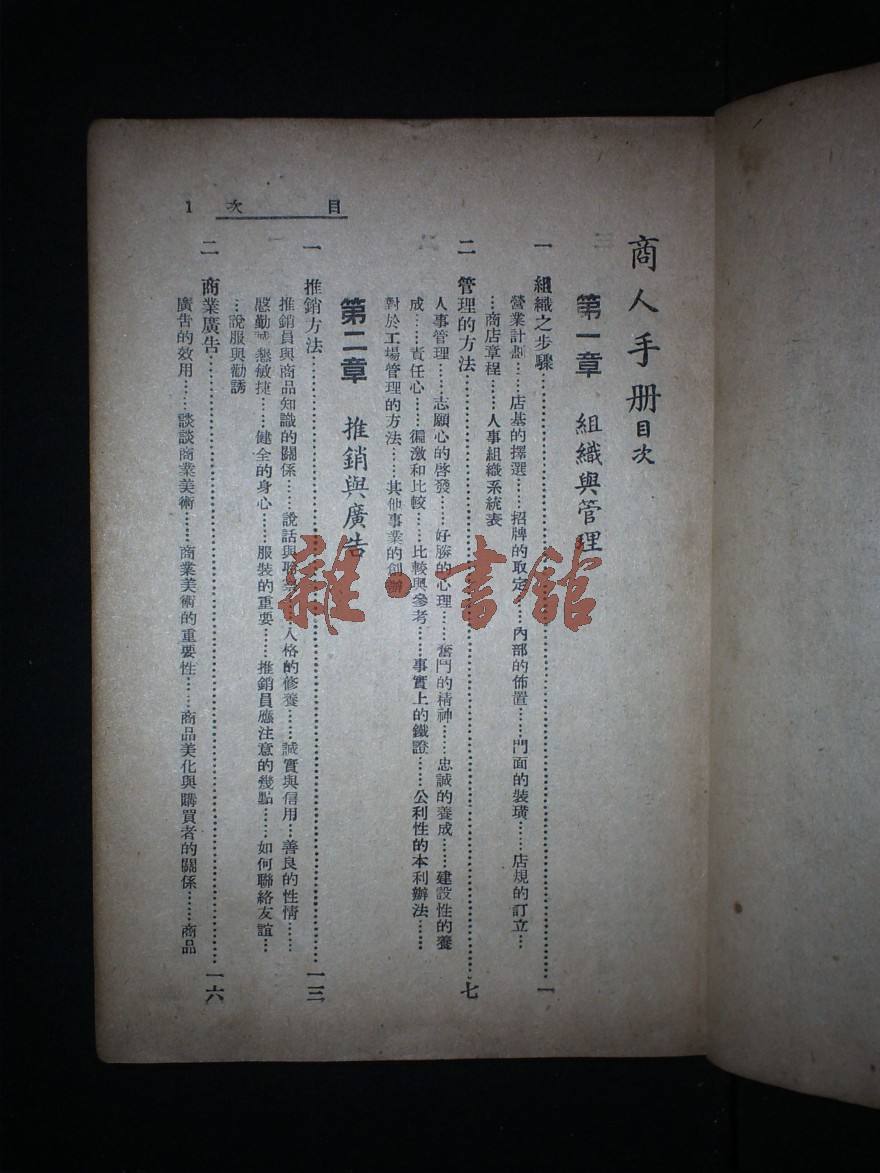 目次 1
商人手册目次
第一章 組織與管理
一 組織之步驟…………一
營業計劃……店基的擇選……招牌的取定……內部的佈置……門面的裝璜……店規的訂立…
…商店章程……人事組織系統表
二 管理的方法…………七
人事管理……志願心的啓發……好勝的心理……奮鬥的精神……忠誠的養成……建設性的養
成……責任心……偏激和比較……比較與參考……事實上的鐵證……公利性的本利辦法……
對於工場管理的方法……其他事業的創辦
第二章 推銷與廣告
一 推銷方法…………一三
推銷員與商品知識的關係……說話與……人格的修養……誠實與信用…善良的性情……
慇勤誠懇敏捷……健全的身心……服裝的重要……推銷員應注意的幾點……如何聯絡友誼…
…說服與勸誘
二 商業廣告…………一六
廣告的效用……談談商業美術……商業美術的重要性……商品美化與購買者的關係……商品
雜·書館